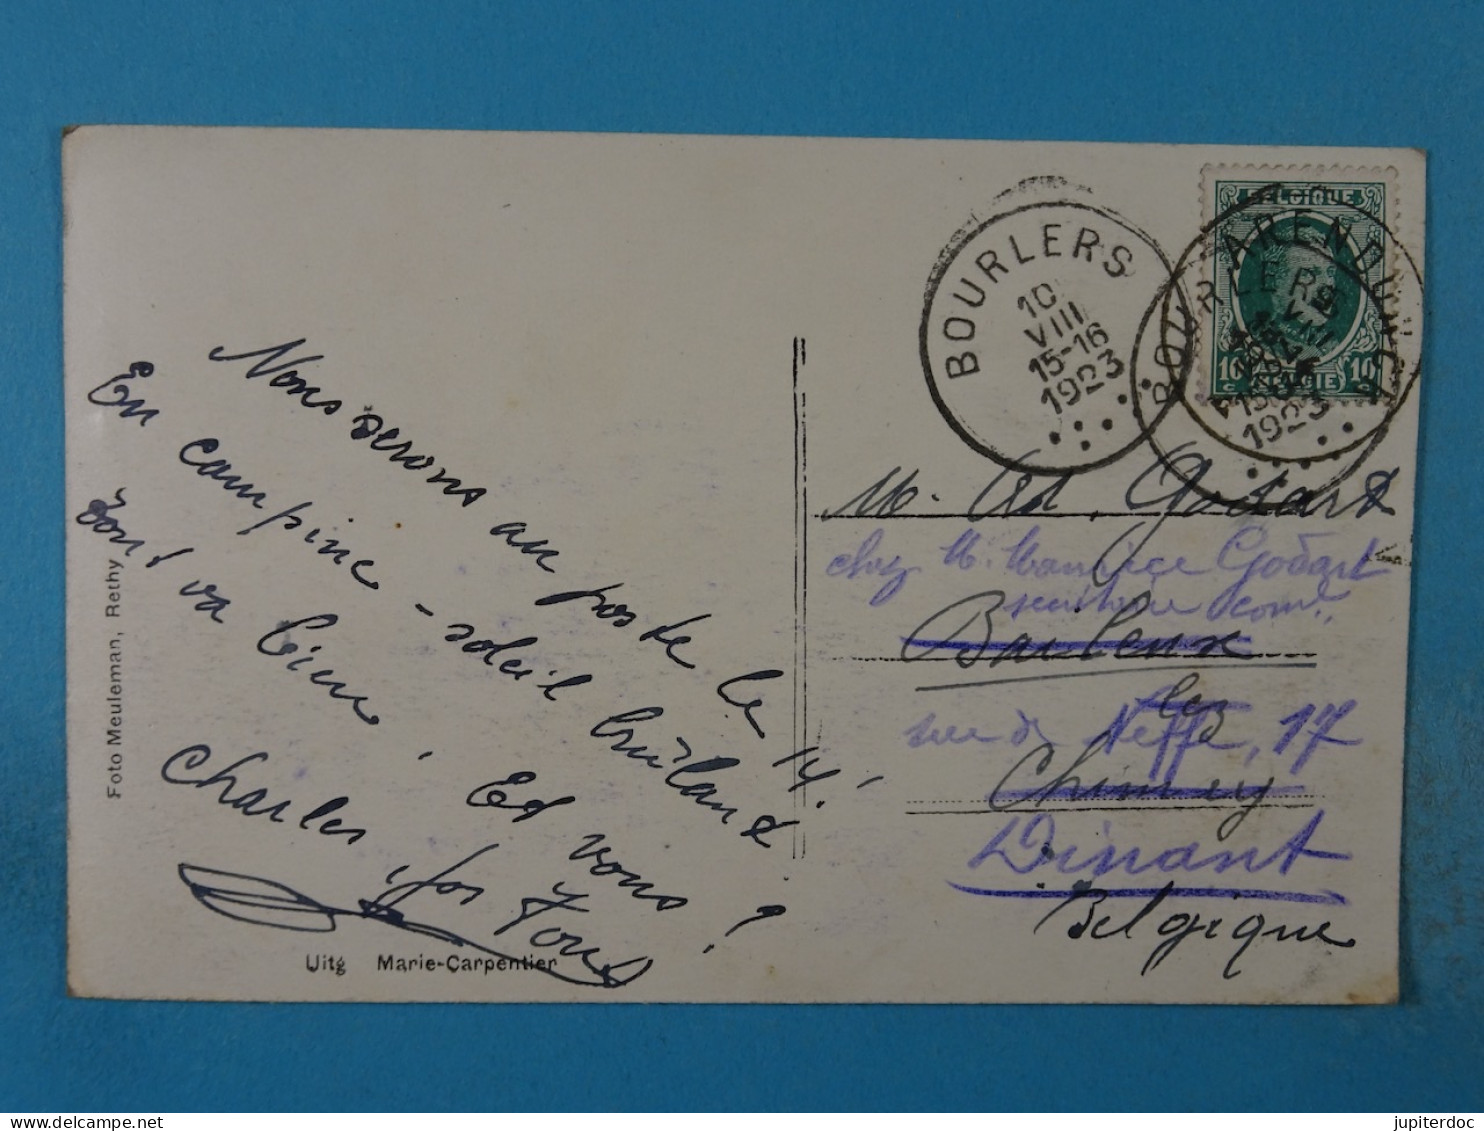 Nous serons au poste le 14!
En campine - soleil brûlant
Tout va bien. Et vous?
Charles
Foto Meuleman, Rethy
Uitg Marie-Carpentier
BOURLERS
10
VIII
15-16
1923
BELGIQUE
BOURLERS
ARENDONCK
1923
10 BELGIE 10
M. Ad. Godart
chez M. Maurice Godart
Baileux
lez
rue de Neffe, 17
Chimay
Dinant
Belgique
jupiterdoc